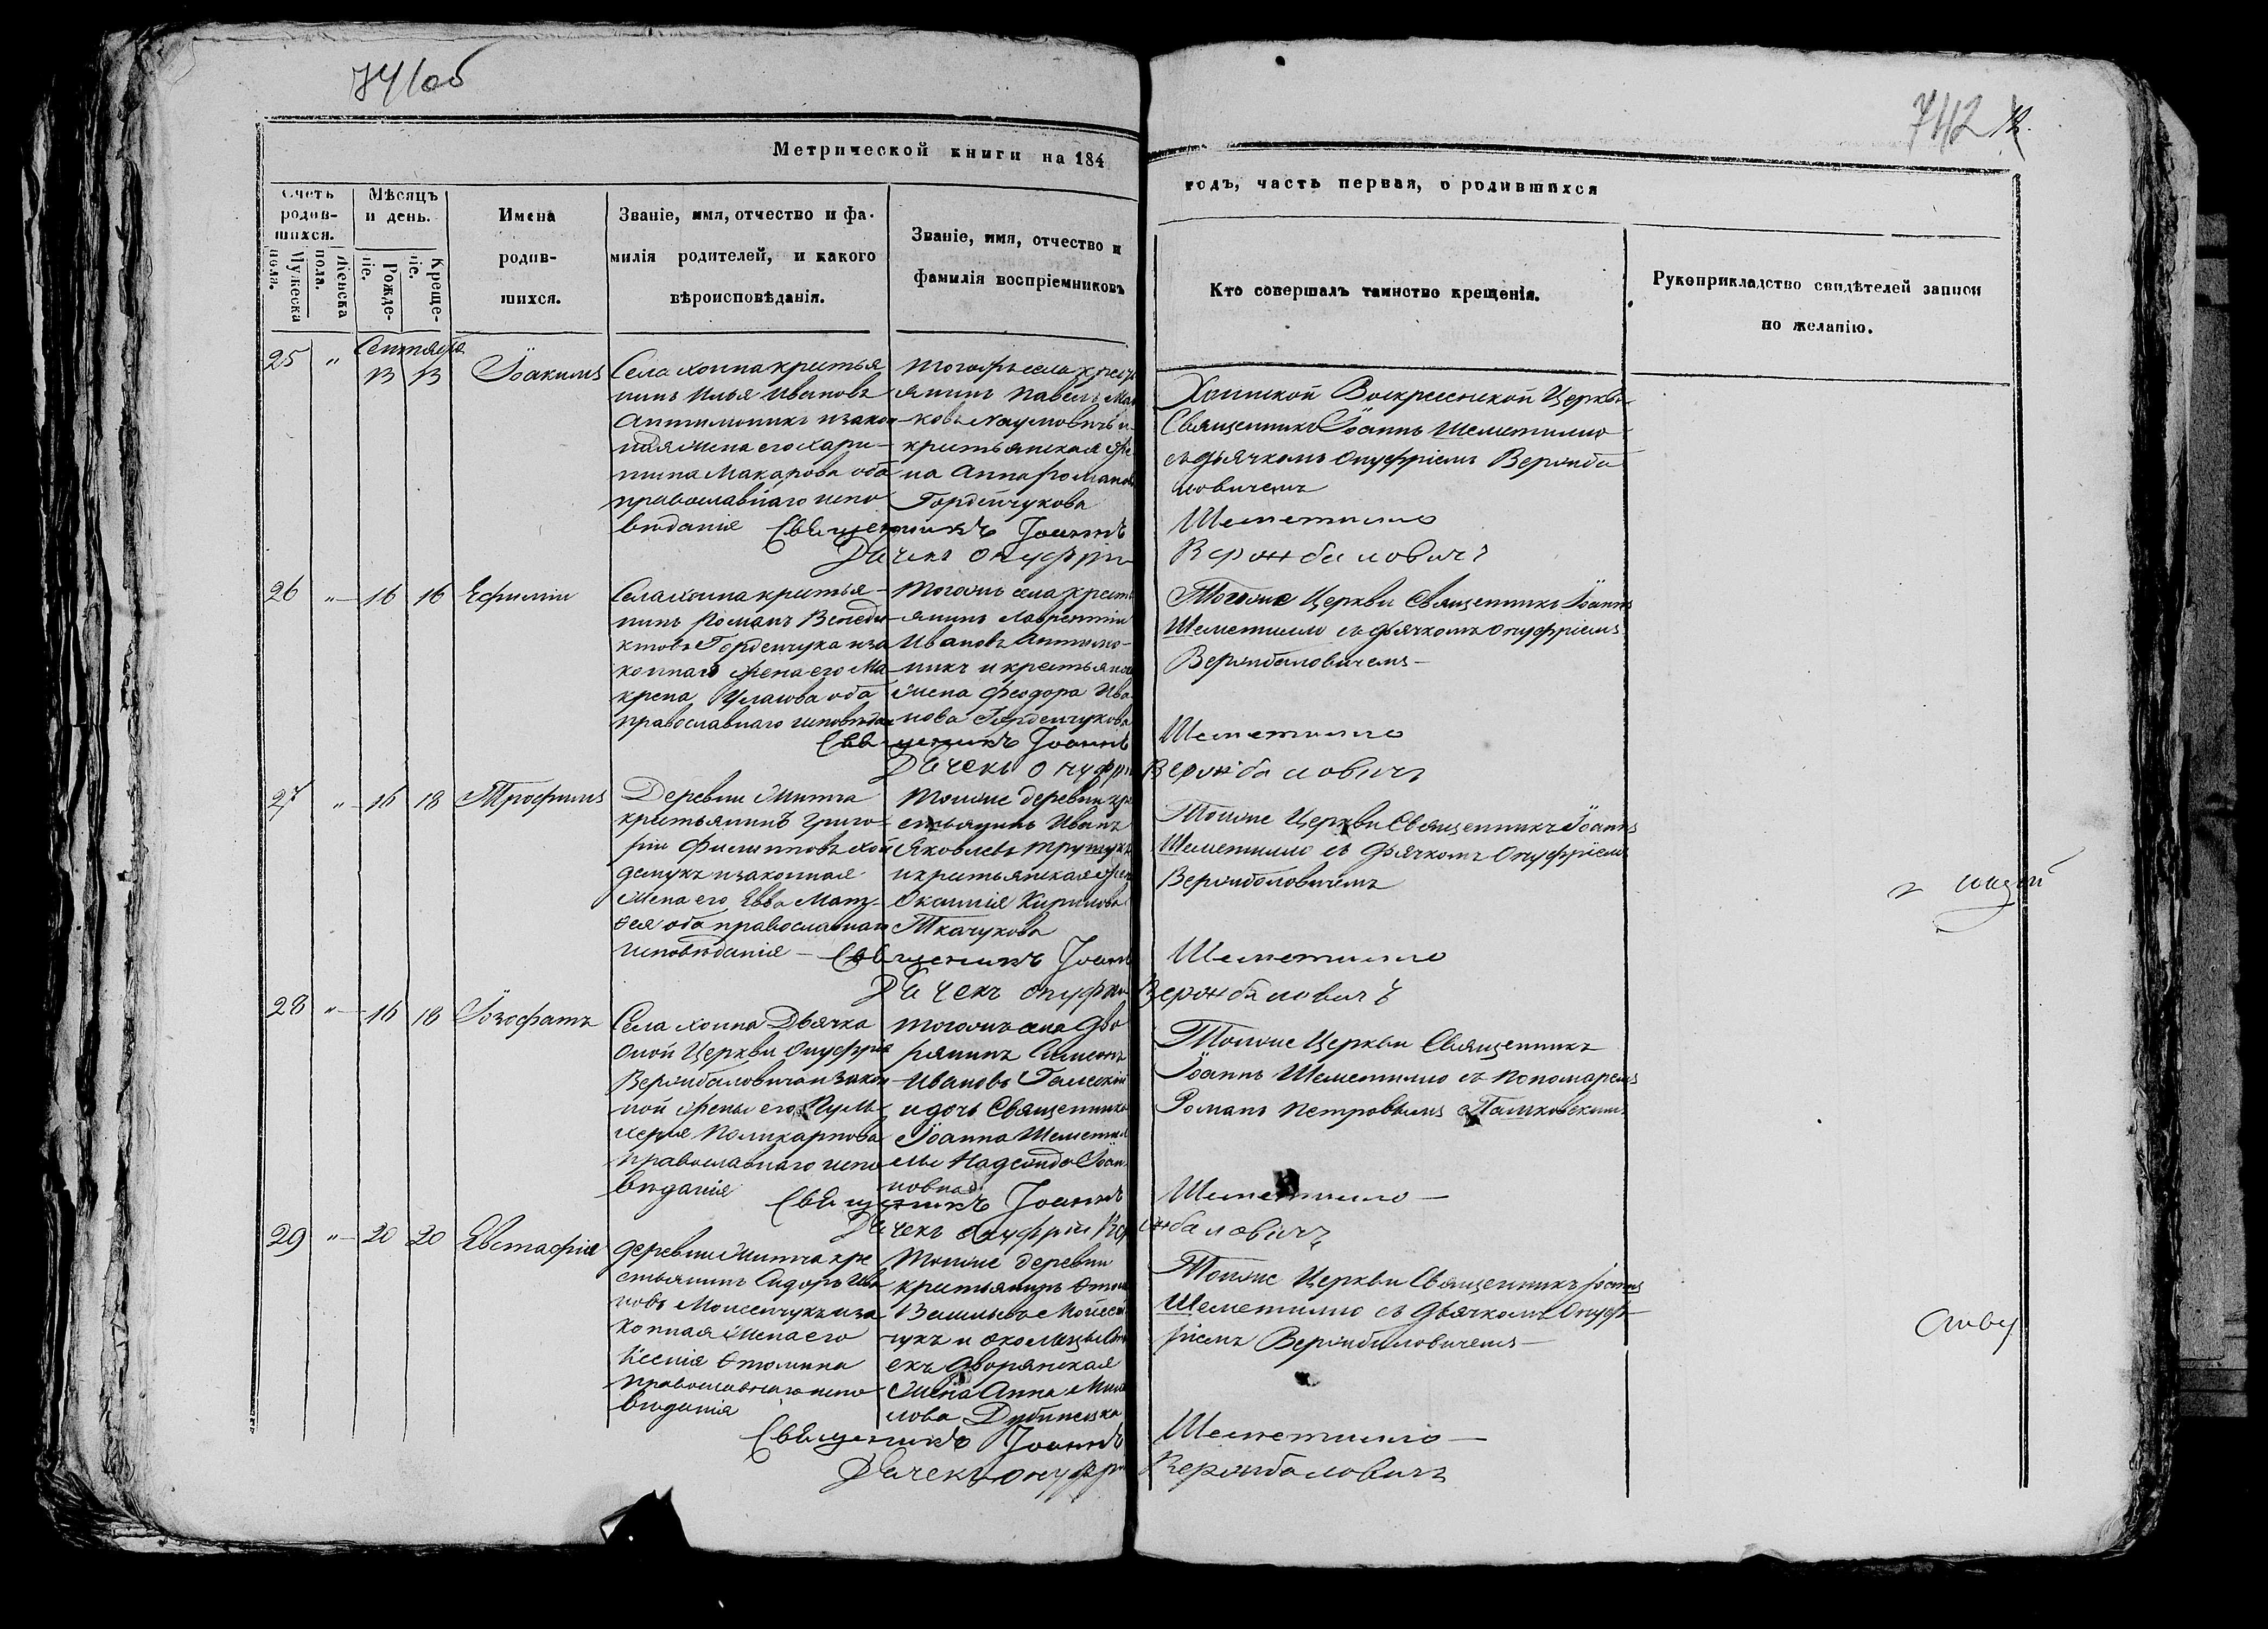 741об
742
Метрической книги на 184
годъ, часть первая, о родившихся
Счетъ родив-шихся.
Мужеска пола.
Женска пола.
Мѣсяцъ и день.
Рожде-ніе.
Креще-ніе.
Имена
родив-
шихся.
Званіе, имя, отчество и фа-
милія родителей, и какого
вѣроисповѣданія.
Званіе, имя, отчество и
фамилія воспріемниковъ
Кто совершалъ таинство крещенія.
Рукоприкладство свидѣтелей записи
по желанію.
Сентября
25 " 13 13 Іоакимъ
Села Хоина крестья
нинъ Илья Ивановъ
Антимоникъ и закон
ная жена его Хари-
тина Макарова оба
православнаго испо
вѣданія
тогожъ села
янинъ Павелъ
ковъ Наумовичъ и
крестьянская же
на Анна Романов
Гордейчукова
Хоинской Воскресенской Церкви
Священникъ Іоаннъ Шеметилло
съ дьячкомъ Онуфріемъ Вержба
ловичемъ
Священникъ Іоаннъ Шеметилло
Дячекъ Онуфри Вержбаловичъ
26 " 16 16 Ефимій
Села Хоина крестья-
нинъ Романъ Венеди
ктовъ Гордейчукъ и за
конная жена его Ма-
крена оба
православнаго исповѣдан
Тогожъ села крест
янинъ Лаврентій
Ивановъ Антимо-
никъ и крестьянск
жена Феодора Ива
нова Гордейчукова
Тогоже Церкви Священникъ Іоаннъ
Шеметилло съ дьячкомъ Онуфріемъ
Вержбаловичемъ-
Священникъ Іоаннъ Шеметилло
Дячекъ Онуфри Вержбаловичъ
27 " 16 18 Трофимъ
Деревни
крестьянинъ Григо-
рій Филипповъ
и законная
жена его Евва Мат-
ѳея оба православнаго
исповѣданія -
Тойже деревни кре
стьянинъ Иванъ
Яковлевъ
и крестьянская жен
Кирилова
Ткачукова
Тойже Церкви Священникъ Іоаннъ
Шеметилло съ дьячкомъ Онуфріемъ
Вержбаловичемъ
Священникъ Іоаннъ Шеметилло
Дячекъ Онуфри Вержбаловичъ
28 " 16 18 Іозофатъ
Села Хоина Дьячка
оной Церкви Онуфрія
Вержбаловича и закон
ной жены его Пуль-
херія Поликарпова
православнаго испо
вѣданія
тогожъ села Дво
рянинъ Симеонъ
Ивановъ
и дочь Священника
Іоанна Шемети
Надежда Іоан
новна
Тойже Церкви Священникъ
Іоаннъ Шеметилло съ пономаремъ
Романъ Петровымъ
Священникъ Іоаннъ Шеметилло -
Дячекъ Онуфрій Вержбаловичъ
29 " 20 20 Евстафій
Деревни кре
стьянинъ Сидоръ Ива
новъ Моисейчукъ и за
конная жена его
Ксенія
православнаго испо
вѣданія
Тойже деревни
крестьянинъ
Васильевъ Мойсей
чукъ и
дворянская
жена Анна
лова
Тойже Церкви Священникъ Іоаннъ
Шеметилло съ дьячкомъ Онуф-
ріемъ Вержбаловичемъ-
Священникъ Іоаннъ Шеметилло -
Дячекъ Онуфри Вержбаловичъ